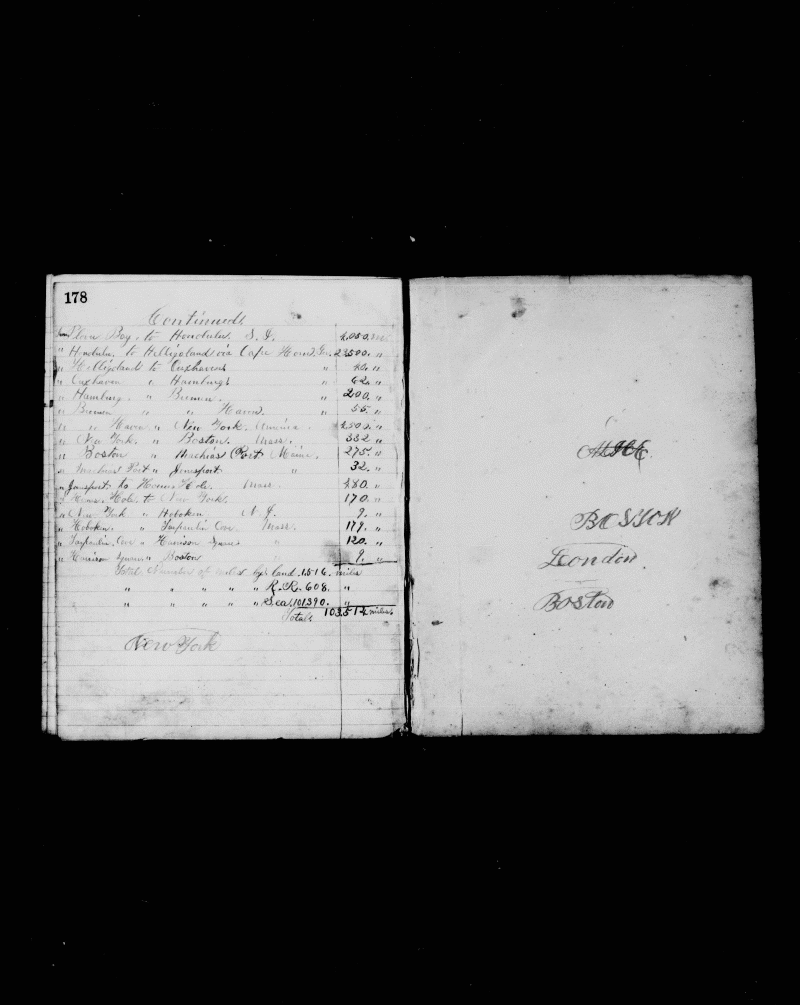 178
Continued.
from Plover Bay. to Honolulu. S. I. 2,050. mls
" Honolulu. to Helligoland via Cape Horn. Gr. 22500. "
" Helligoland to Cuxhaven " "
" Cuxhaven " Hamburg " 62. "
" Hamburg. " Bremen. " 200. "
" Bremen " " Haven. " 55. "
" " Haven " New York. America. "
" New York. " Boston. Mass. 332 "
" Boston " Machias Port Maine. 275. "
" Machias Port " Jonesport " 32. "
" Jonesport to Holmes Hole. Mass. 280. "
" Holmes Hole. to New York. 170. "
" New York " Hoboken N. J. 9. "
" Hoboken. " Tarpaulin Cove. Mass. 179. "
" Tarpaulin. Cove " Harrison Square " 120. "
" Harrison Square " Boston " 9. "
Total Number of miles by land. 1516. miles
" " " " " " R. R. 608. "
" " " " " " Sea. 101390. "
Total. 103514 miles
New York
BOSTON
London.
Boston